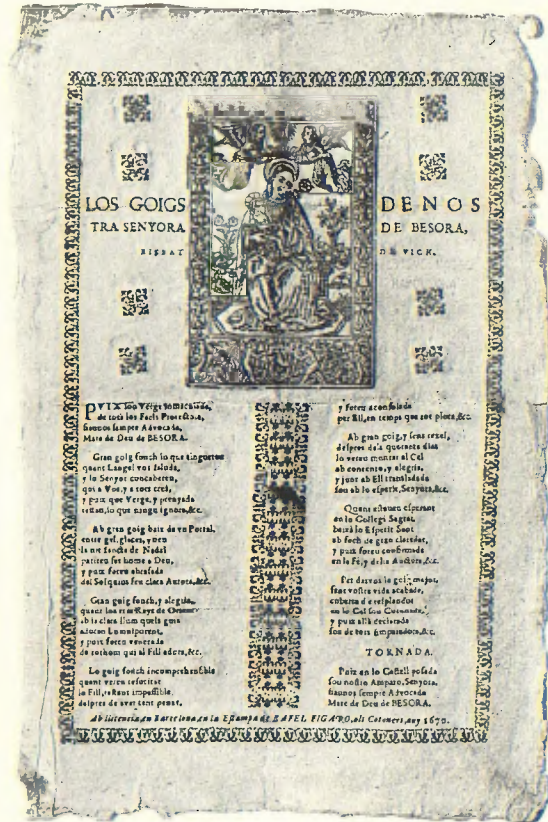 15
LOS GOIGS DE NOS
TRA SENYORA DE BESORA,
BISBAT DE VICH.
PUIX sou Verge Immaculada,
de tots los Faels Protectora,
siaunos sempre Advocada,
Mare de Deu de BESORA.
Gran goig fonch lo que tinguereu
quant Langel vos saluda,
y lo Senyor concebereu,
qui a Vos, y a tots creá,
y puix que Verge, y prenyada
restau, lo que ningu ignora, &c.
Ab gran goig baix de vn Portal,
entre gel, glaçes, y neu
la nit sancta de Nadal
parireu fet home a Deu,
y puix foreu abrasada
del Sol quius feu clara Aurora, &c.
Gran goig fonch, y alegria,
quant los tres Reys de Orient
ab la clara llum quels guia
adoran Lomnipotent,
y puix foreu venerada
de tothom qui al Fill adora, &c.
Lo goig fonch incomprehensible
quant vereu resucitat
lo Fill, restant impassible,
despres de aver tant penat,
y foreu aconsolada
per Ell, en temps que tot plora, &c.
Ab gran goig, y sens rezel,
despres dels quaranta dias
lo vereu montar al Cel
ab contento, y alegria,
y junt ab Ell transladada
sou ab lo esperit, Senyora, &c.
Quant estaveu esperant
en lo Collegi Sagrat,
baixá lo Esperit Sant
ab foch de gran claredat,
y puix foreu confirmada
en la Fé, y della Auctora, &c.
Fet darvos lo goig major,
fent vostra vida acabada,
cuberta de resplandor
en lo Cel sou Coronada,
y puix allá declarada
sou de tots Emparadora, &c.
TORNADA.
Puix en lo Castell posada
sou nostro Amparo, Senyora,
siaunos sempre Advocada
Mare de Deu de BESORA.
Ab llicencia en Barcelona en la Estampa de RAFEL FIGARO, als Cotoners, any 1670.